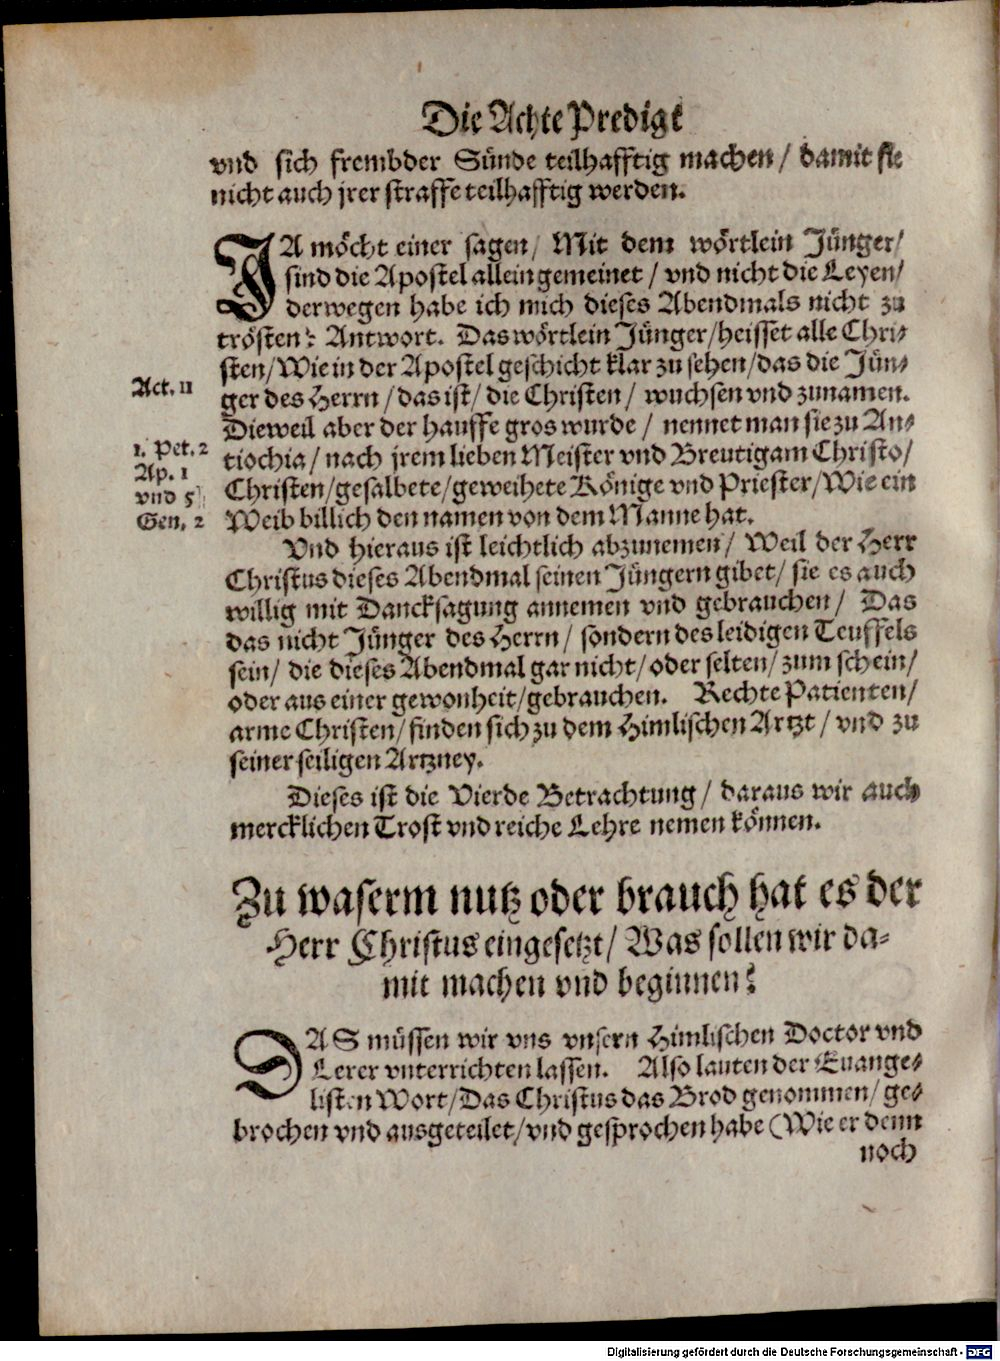 Die Achte Predigt
vnd sich frembder Sünde teilhafftig machen / damit sie
nicht auch jrer straffe teilhafftig werden.
JA möcht einer sagen / Mit dem wörtlein Jünger /
sind die Apostel allein gemeinet / vnd nicht die Leyen /
derwegen habe ich mich dieses Abendmals nicht zu
trösten? Antwort. Das wörtlein Jünger / heisset alle Chri-
sten / Wie in der Apostel geschicht klar zu sehen / das die Jün-
Act. 11
ger des Herrn / das ist / die Christen / wuchsen vnd zunamen.
Dieweil aber der hauffe gros wurde / nennet man sie zu An-
1. Pet. 2
tiochia / nach jrem lieben Meister vnd Breutigam Christo /
Ap. 1
Christen / gesalbete / geweihete Könige vnd Priester / Wie ein
vnd 5
Gen. 2
Weib billich den namen von dem Manne hat.
Vnd hieraus ist leichtlich abzunemen / Weil der Herr
Christus dieses Abendmal seinen Jüngern gibet / sie es auch
willig mit Dancksagung annemen vnd gebrauchen / Das
das nicht Jünger des Herrn / sondern des leidigen Teuffels
sein / die dieses Abendmal gar nicht / oder selten / zum schein /
oder aus einer gewonheit / gebrauchen. Rechte Patienten /
arme Christen / finden sich zu dem Himlischen Artzt / vnd zu
seiner seiligen Artzney.
Dieses ist die Vierde Betrachtung / daraus wir auch
mercklichen Trost vnd reiche Lehre nemen können.
Zu waserm nutz oder brauch hat es der
Herr Christus eingesetzt / Was sollen wir da-
mit machen vnd beginnen?
DAS müssen wir vns vnsern Himlischen Doctor vnd
Lerer vnterrichten lassen. Also lauten der Euange-
listen Wort / Das Christus das Brod genommen / ge-
brochen vnd ausgeteilet / vnd gesprochen habe (Wie er denn
noch
Digitalisierung gefördert durch die Deutsche Forschungsgemeinschaft - DFG